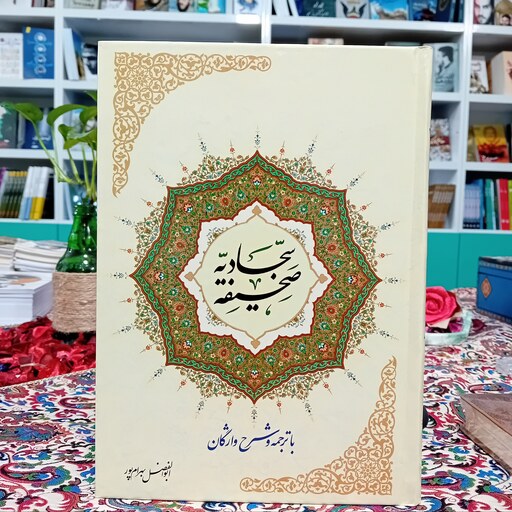 صحیفه
سجّادیّه
با ترجمه و شرح واژگان
ابوالفضل بهرام‌پور